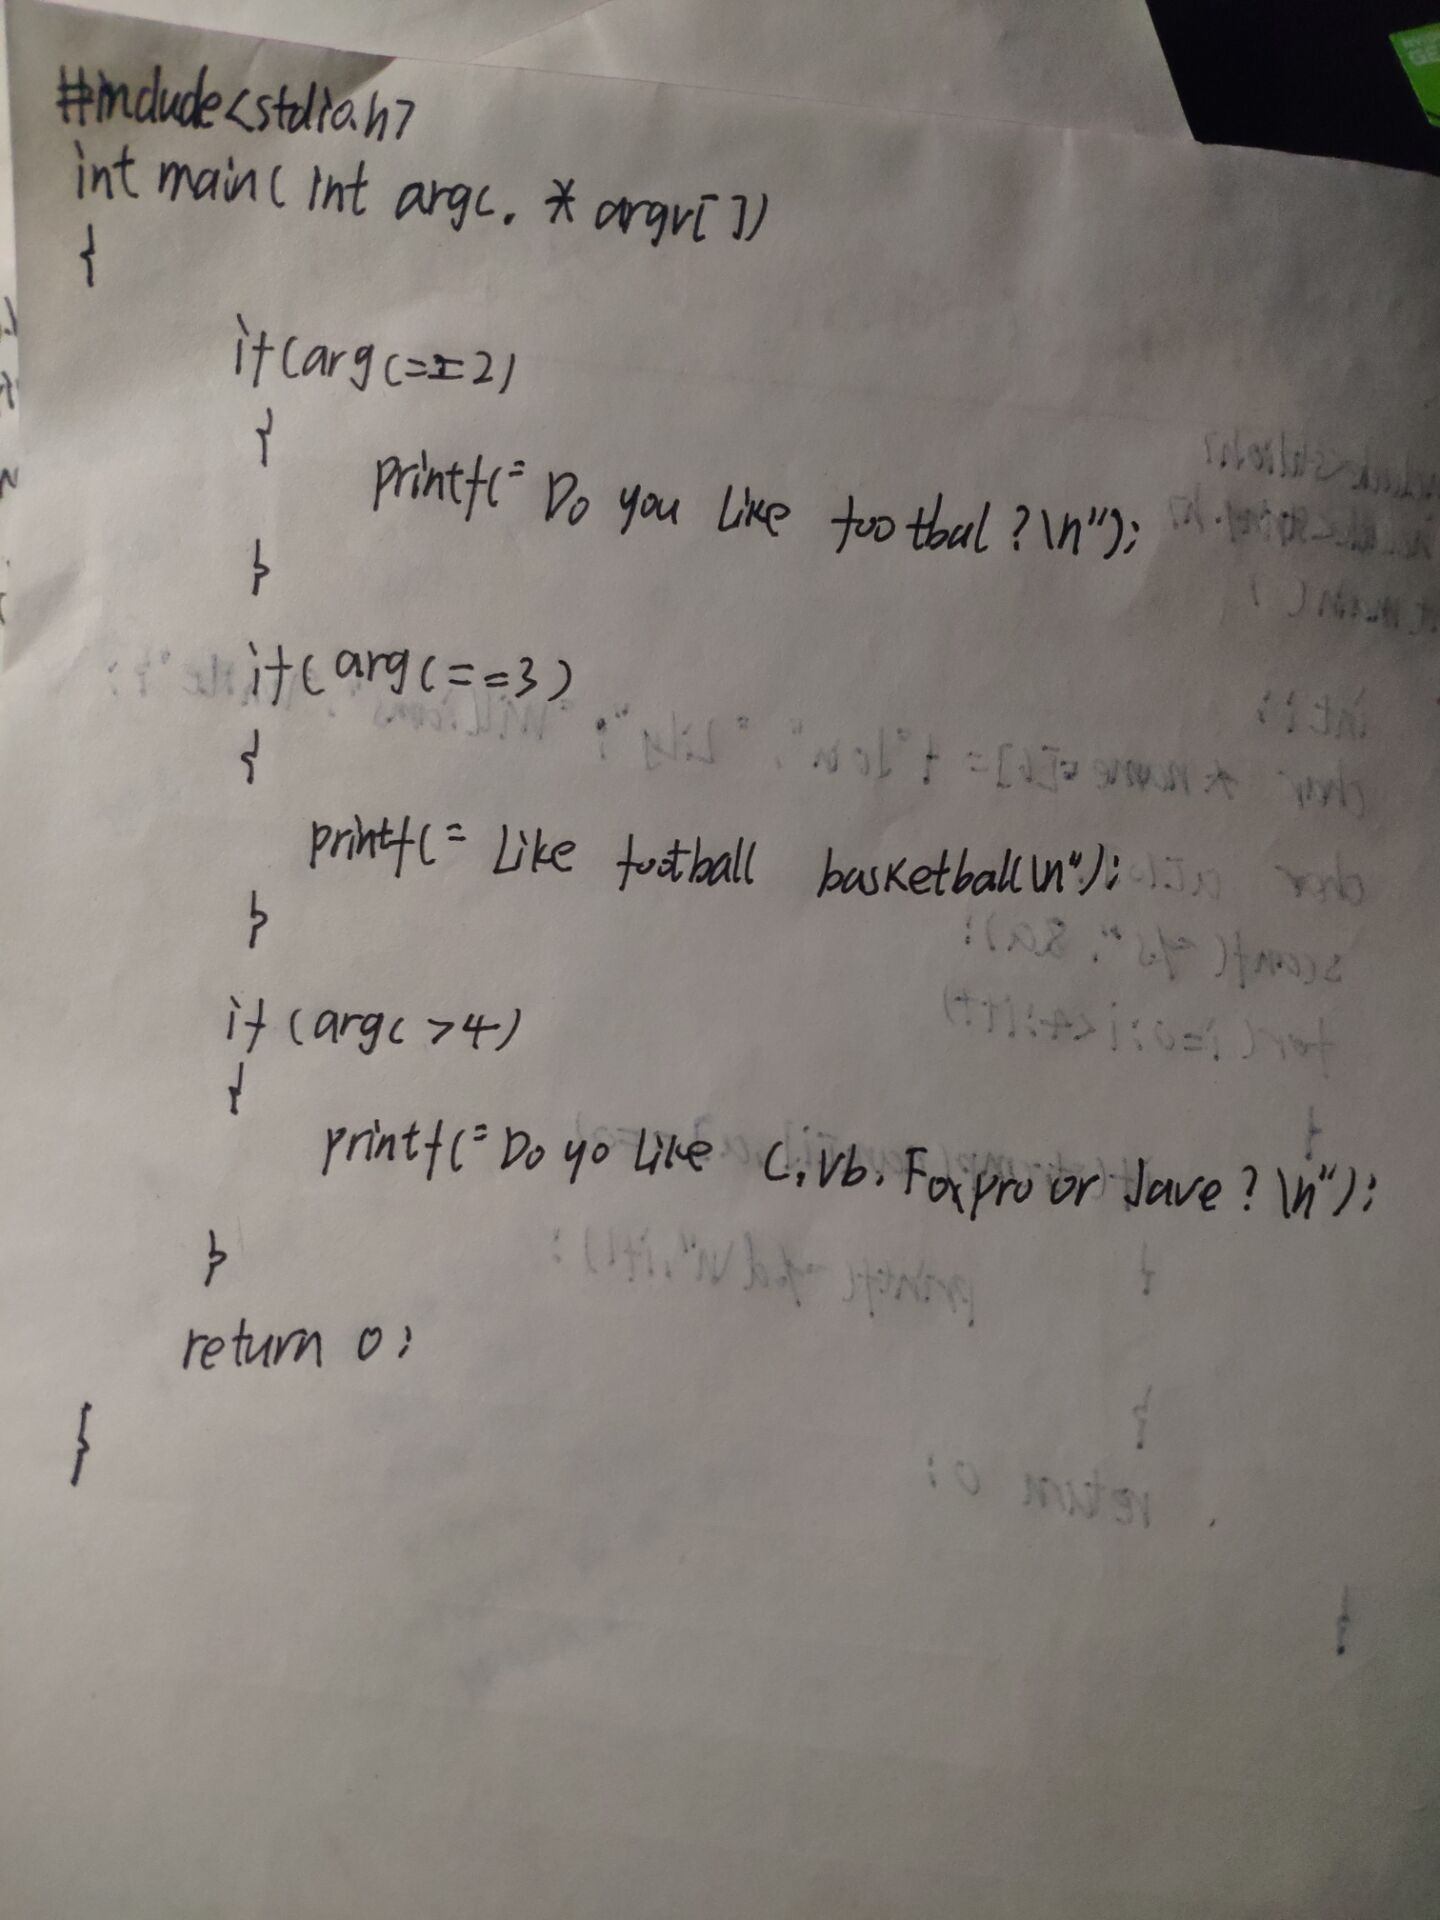 #include<stdio.h>
int main(int argc, * argv[])
{
if(argc==2)
{
printf("Do you like footbal?\n");
}
if(argc==3)
{
printf("Like football basketball\n");
}
if(argc>4)
{
printf("Do yo like C,Vb,Foxpro or Jave?\n");
}
return 0;
}